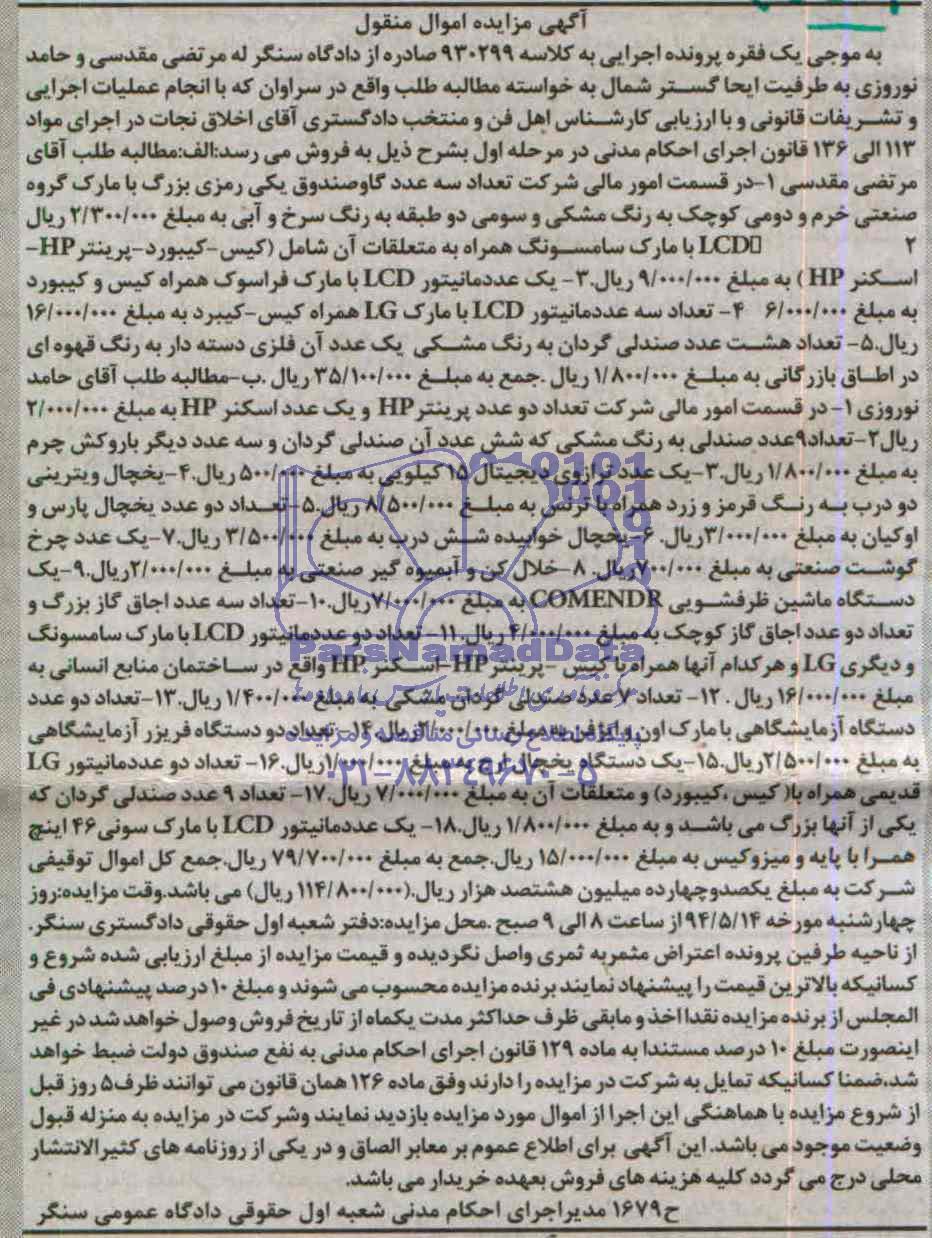 آگهی مزایده اموال منقول
به موجی یک فقره پرونده اجرایی به کلاسه ۹۳۰۲۹۹ صادره از دادگاه سنگر له مرتضی مقدسی و حامد
نوروزی به طرفیت ایحا گستر شمال به خواسته مطالبه طلب واقع در سراوان که با انجام عملیات اجرایی
و تشریفات قانونی و با ارزیابی کارشناس اهل فن و منتخب دادگستری آقای اخلاق نجات در اجرای مواد
۱۱۳ الی ۱۳۶ قانون اجرای احکام مدنی در مرحله اول بشرح ذیل به فروش می رسد:الف:مطالبه طلب آقای
مرتضی مقدسی ۱-در قسمت امور مالی شرکت تعداد سه عدد گاوصندوق یکی رمزی بزرگ با مارک گروه
صنعتی خرم و دومی کوچک به رنگ مشکی و سومی دو طبقه به رنگ سرخ و آبی به مبلغ ۲/۳۰۰/۰۰۰ ریال
۲ LCD با مارک سامسونگ همراه به متعلقات آن شامل (کیس-کیبورد-پرینتر HP-
اسکنر HP ) به مبلغ ۹/۰۰۰/۰۰۰ ریال.۳- یک عددمانیتور LCD با مارک فراسوک همراه کیس و کیبورد
به مبلغ ۶/۰۰۰/۰۰۰ ۴- تعداد سه عددمانیتور LCD با مارک LG همراه کیس-کیبرد به مبلغ ۱۶/۰۰۰/۰۰۰
ریال.۵- تعداد هشت عدد صندلی گردان به رنگ مشکی یک عدد آن فلزی دسته دار به رنگ قهوه ای
در اطاق بازرگانی به مبلغ ۱/۸۰۰/۰۰۰ ریال .جمع به مبلغ ۳۵/۱۰۰/۰۰۰ ریال .ب-مطالبه طلب آقای حامد
نوروزی ۱- در قسمت امور مالی شرکت تعداد دو عدد پرینتر HP و یک عدد اسکنر HP به مبلغ ۲/۰۰۰/۰۰۰
ریال۲-تعداد۹عدد صندلی به رنگ مشکی که شش عدد آن صندلی گردان و سه عدد دیگر باروکش چرم
به مبلغ ۱/۸۰۰/۰۰۰ ریال.۳-یک عدد ترازوی دیجیتال ۱۵ کیلویی به مبلغ ۵۰۰/۰۰۰ ریال.۴-یخچال ویترینی
دو درب به رنگ قرمز و زرد همراه با ترنس به مبلغ ۸/۵۰۰/۰۰۰ ریال.۵-تعداد دو عدد یخچال پارس و
اوکیان به مبلغ ۳/۰۰۰/۰۰۰ریال. ۶-یخچال خوابیده شش درب به مبلغ ۳/۵۰۰/۰۰۰ ریال.۷-یک عدد چرخ
گوشت صنعتی به مبلغ ۷۰۰/۰۰۰ریال. ۸-خلال کن و آبمیوه گیر صنعتی به مبلغ ۲/۰۰۰/۰۰۰ریال.۹-یک
دستگاه ماشین ظرفشویی COMENDR به مبلغ ۷/۰۰۰/۰۰۰ریال.۱۰-تعداد سه عدد اجاق گاز بزرگ و
تعداد دو عدد اجاق گاز کوچک به مبلغ ۴/۰۰۰/۰۰۰ ریال.۱۱- تعداد دو عددمانیتور LCD با مارک سامسونگ
و دیگری LG و هرکدام آنها همراه با کیس - پرینتر HP-اسکنر HP واقع در ساختمان منابع انسانی به
مبلغ ۱۶/۰۰۰/۰۰۰ ریال . ۱۲- تعداد ۷ عدد صندلی گردان مشکی به مبلغ ۱/۴۰۰/۰۰۰ ریال.۱۳-تعداد دو عدد
دستگاه آزمایشگاهی با مارک اون و ایزفن به مبلغ ۲/۰۰۰/۰۰۰ ریال ۱۴- تعداد دو دستگاه فریزر آزمایشگاهی
به مبلغ ۲/۵۰۰/۰۰۰ریال.۱۵-یک دستگاه یخچال ارج به مبلغ ۱/۰۰۰/۰۰۰ریال.۱۶- تعداد دو عددمانیتور LG
قدیمی همراه با( کیس ،کیبورد) و متعلقات آن به مبلغ ۷/۰۰۰/۰۰۰ ریال.۱۷- تعداد ۹ عدد صندلی گردان که
یکی از آنها بزرگ می باشد و به مبلغ ۱/۸۰۰/۰۰۰ ریال.۱۸- یک عددمانیتور LCD با مارک سونی۴۶ اینچ
همرا با پایه و میزوکیس به مبلغ ۱۵/۰۰۰/۰۰۰ ریال.جمع به مبلغ ۷۹/۷۰۰/۰۰۰ ریال.جمع کل اموال توقیفی
شرکت به مبلغ یکصدوچهارده میلیون هشتصد هزار ریال.(۱۱۴/۸۰۰/۰۰۰ ریال) می باشد.وقت مزایده:روز
چهارشنبه مورخه ۹۴/۵/۱۴ از ساعت ۸ الی ۹ صبح .محل مزایده:دفتر شعبه اول حقوقی دادگستری سنگر.
از ناحیه طرفین پرونده اعتراض مثمربه ثمری واصل نگردیده و قیمت مزایده از مبلغ ارزیابی شده شروع و
کسانیکه بالاترین قیمت را پیشنهاد نمایند برنده مزایده محسوب می شوند و مبلغ ۱۰ درصد پیشنهادی فی
المجلس از برنده مزایده نقدا اخذ و مابقی ظرف حداکثر مدت یکماه از تاریخ فروش وصول خواهد شد در غیر
اینصورت مبلغ ۱۰ درصد مستندا به ماده ۱۲۹ قانون اجرای احکام مدنی به نفع صندوق دولت ضبط خواهد
شد،ضمنا کسانیکه تمایل به شرکت در مزایده را دارند وفق ماده ۱۲۶ همان قانون می توانند ظرف۵ روز قبل
از شروع مزایده با هماهنگی این اجرا از اموال مورد مزایده بازدید نمایند وشرکت در مزایده به منزله قبول
وضعیت موجود می باشد. این آگهی برای اطلاع عموم بر معابر الصاق و در یکی از روزنامه های کثیرالانتشار
محلی درج می گردد کلیه هزینه های فروش بعهده خریدار می باشد.
ح۱۶۷۹ مدیراجرای احکام مدنی شعبه اول حقوقی دادگاه عمومی سنگر
ParsNamadData
پایگاه اطلاع رسانی مناقصه و مزایده
۰۲۱-۸۸۳۴۹۶۷۰-۵